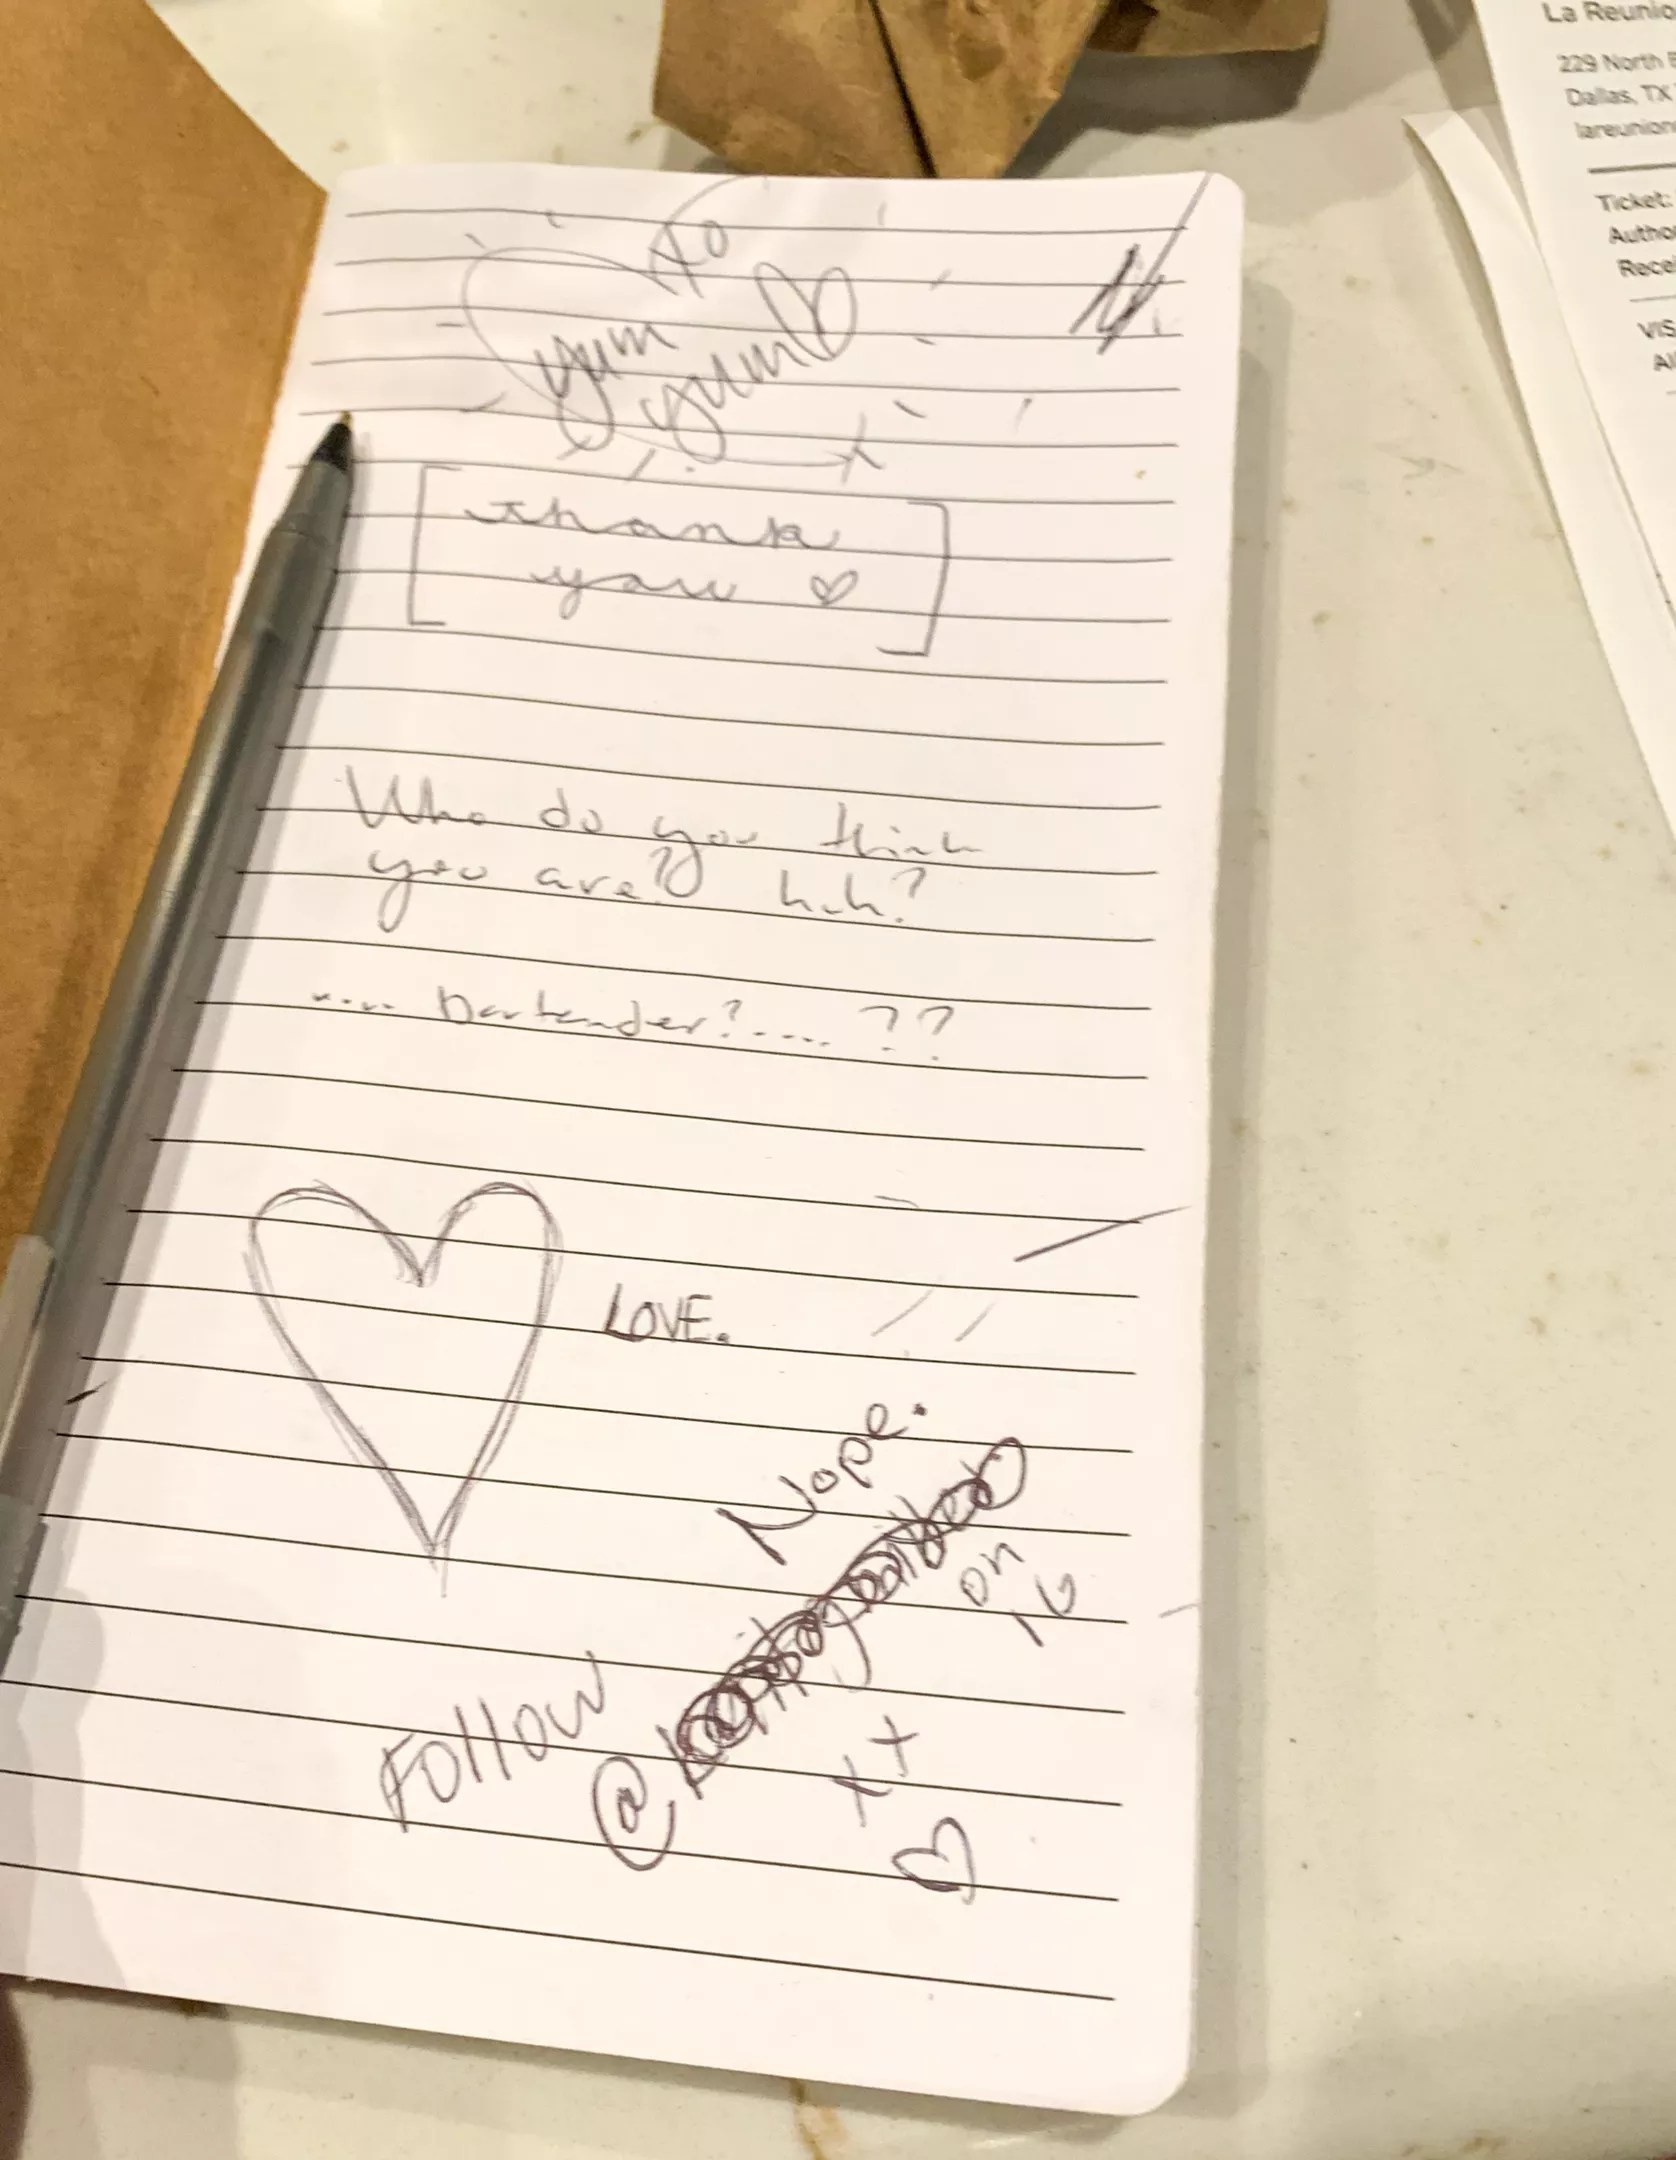 yum
yum
thank
you
Who do you think
you are? huh?
.... bartender?.... ??
LOVE.
Nope.
Follow
@
on
IG
xx
La Reunio
229 North
Dallas, TX
lareunion
Ticket:
Autho
Recei
VIS